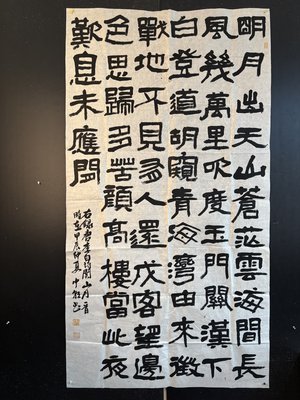 明月出天山蒼茫雲海間長
風幾萬里吹度玉門關漢下
白登道胡窺青海灣由來徵
戰地不見有人還戍客望邊
色思歸多苦顏高樓當此夜
歎息未應閒
右錄唐李白詩關山月一首
時在甲辰仲夏